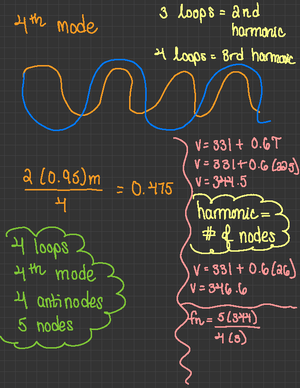 4th mode
3 loops = 2nd
harmonic
4 loops = 3rd harmonic
2(0.95)m
4
= 0.475
4 loops
4th mode
4 antinodes
5 nodes
V = 331 + 0.6T
V = 331 + 0.6 (22.5)
V = 344.5
harmonic =
# of nodes
V = 331 + 0.6(26)
V = 346.6
fn = 5(344)
4(3)